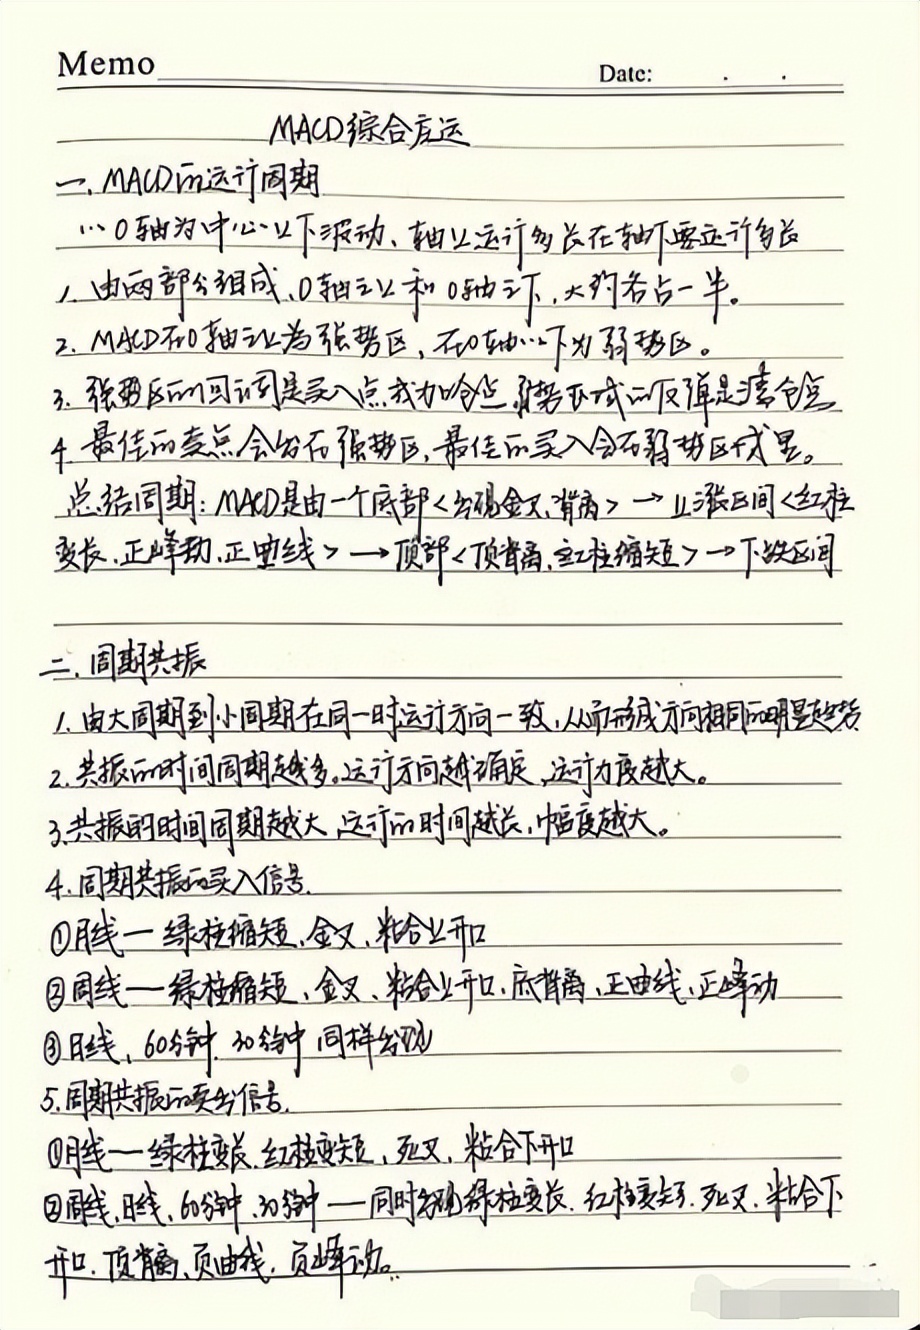 Memo
Date: . .
MACD综合应运
一、MACD的运行周期
…0轴为中心上下波动、轴上运行多长在轴下要运行多长
1、由两部分组成、0轴之上和0轴之下,大约各占一半。
2、MACD在0轴之上为强势区,在0轴以下为弱势区。
3、强势区的回调是买入点或加仓点,弱势区域的反弹是清仓点
4、最佳的卖点会出在强势区,最佳的买入会在弱势区域里。
总结周期:MACD是由一个底部<出现金叉、背离>→上涨区间<红柱
变长、正峰动、正曲线>→顶部<顶背离、红柱缩短>→下跌区间
二、周期共振
1、由大周期到小周期在同一时运行方向一致,从而形成方向相同的明显趋势
2、共振的时间周期越多。运行方向越确定、运行力度越大。
3、共振的时间周期越大、运行的时间越长,幅度越大。
4、周期共振的买入信号、
①月线—绿柱缩短、金叉、粘合上开口
②周线—绿柱缩短、金叉、粘合上开口、底背离、正曲线、正峰动
③日线、60分钟、30分钟同样出现
5、周期共振的卖出信号、
①月线—绿柱变长、红柱变短、死叉、粘合下开口
②周线、日线、60分钟、30分钟—同时出现绿柱变长、红柱变短、死叉、粘合下
开口、顶背离、负曲线、负峰动。